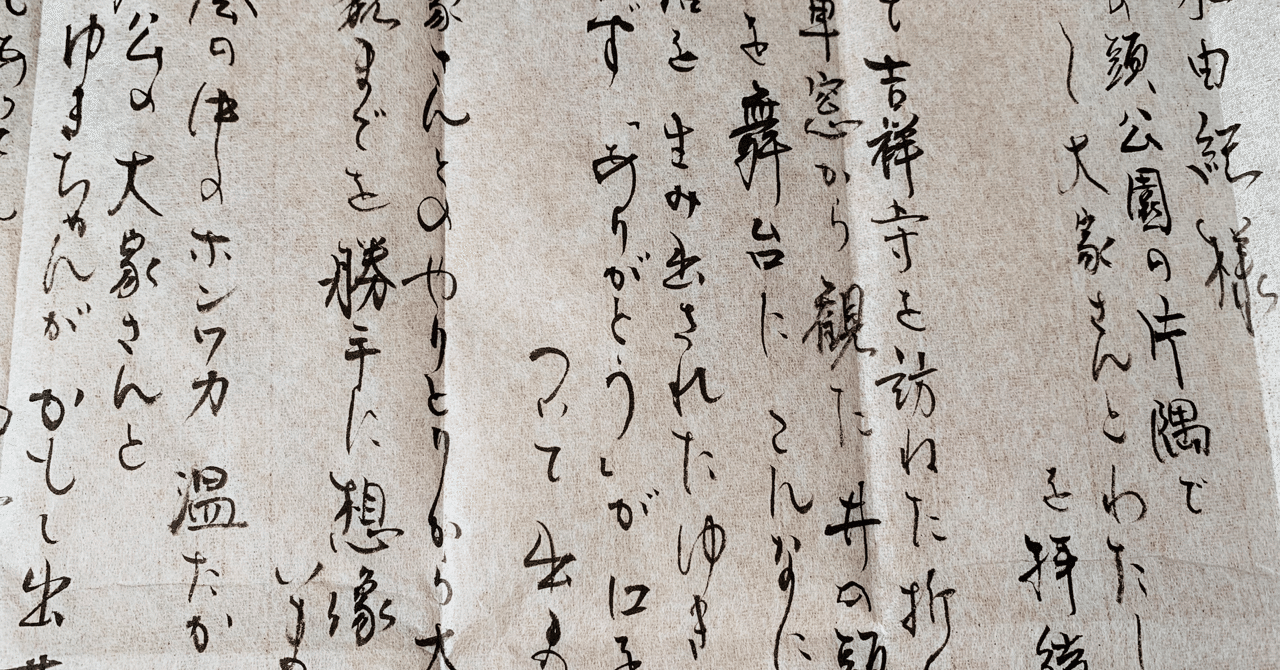 由紀様
の頭公園の片隅で
し 大家さんとわたし
を拝読
て吉祥寺を訪ねた折
車窓から観た井の頭
を舞台に こんなに
を生み出されたゆき
です「ありがとう」が口を
ついて出ま
家さんとのやりとりから大
までを勝手に想像
いま
の中のホンワカ 温たか
公の大家さんと
ゆきちゃんが かもし出